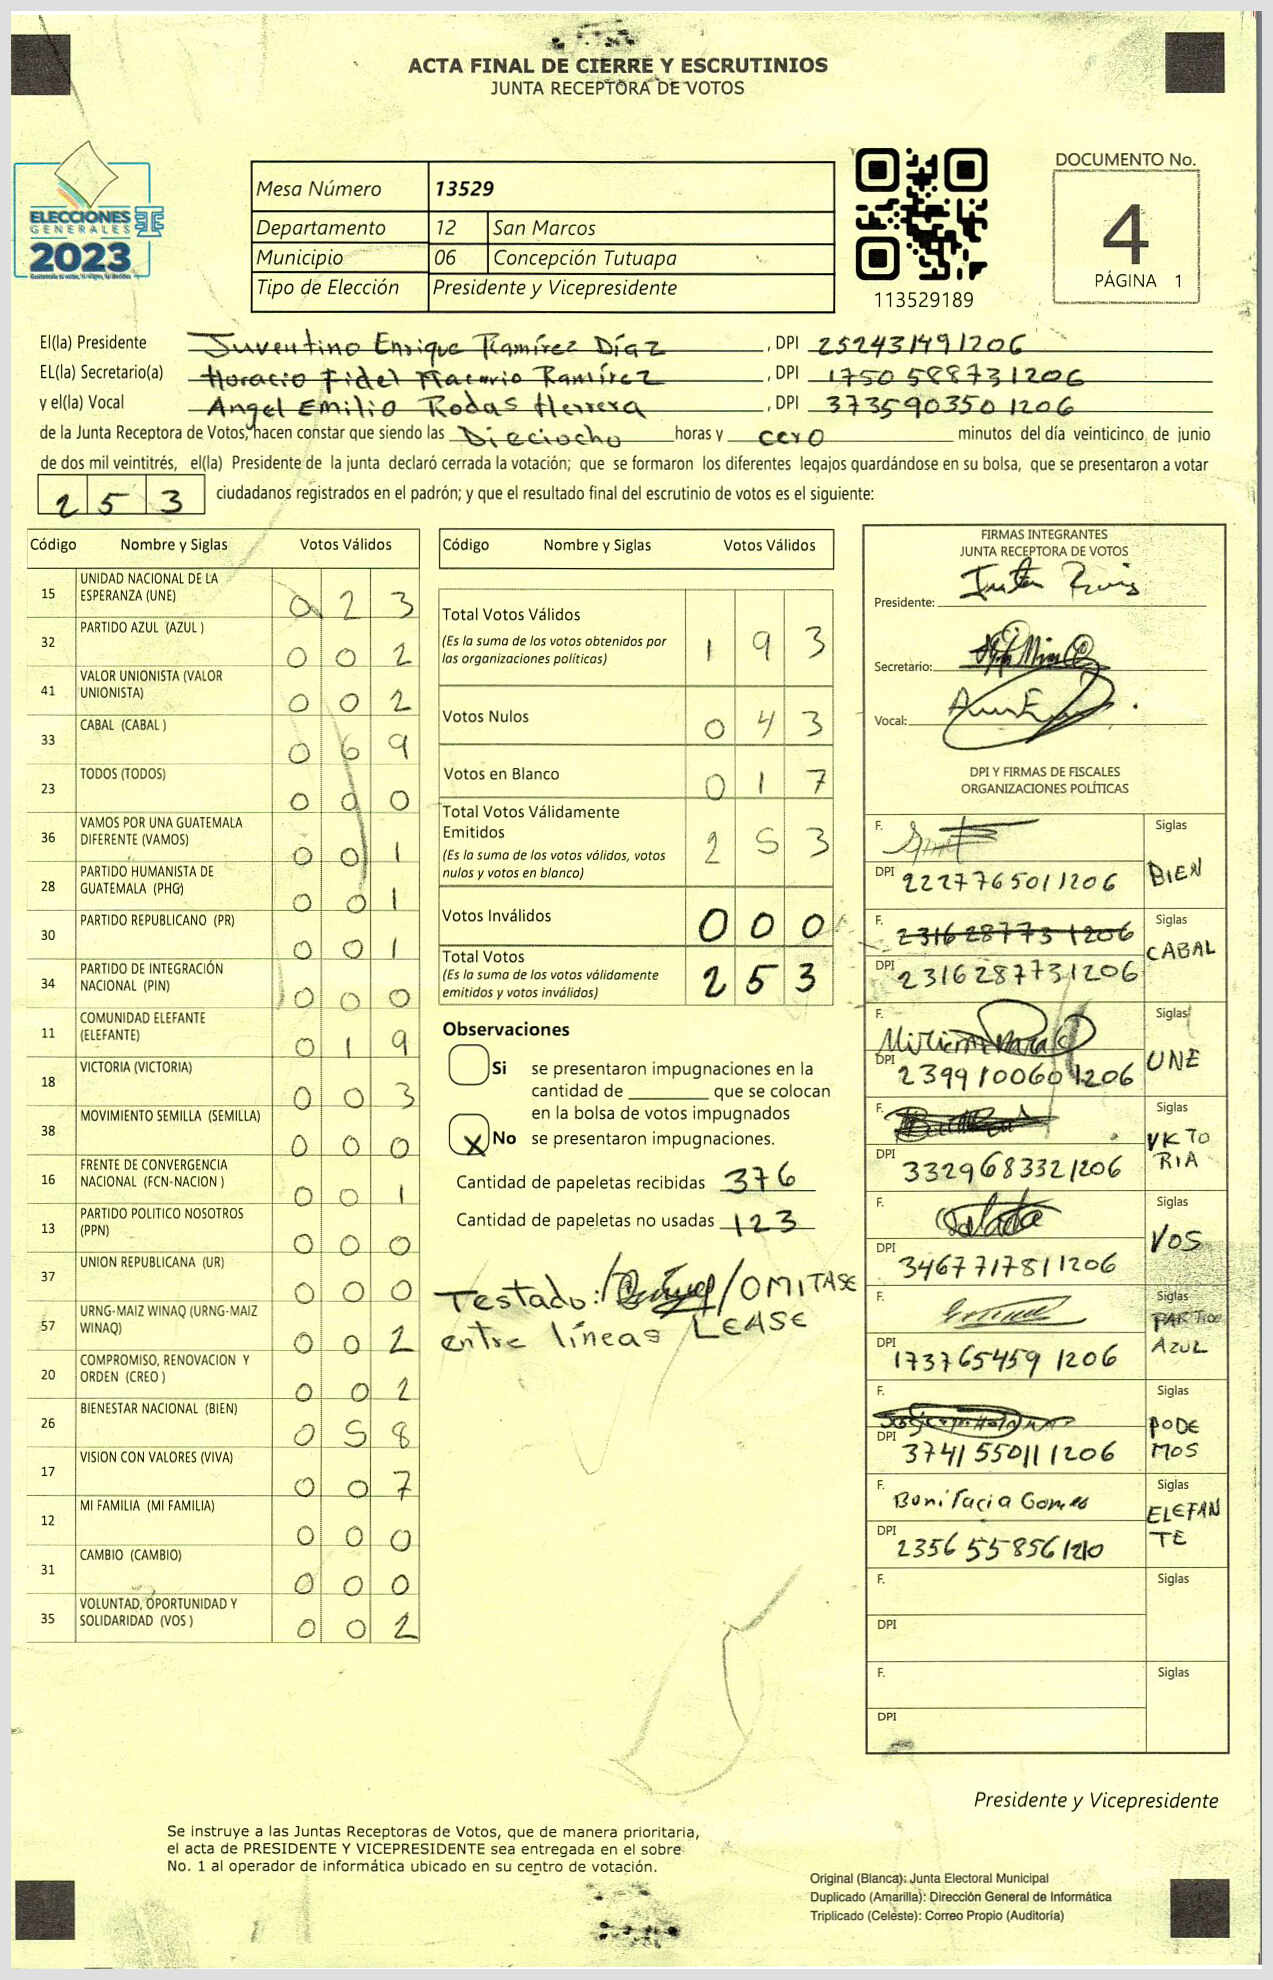 ACTA FINAL DE CIERRE Y ESCRUTINIOS
JUNTA RECEPTORA DE VOTOS
ELECCIONES
GENERALES
2023
Mesa Número 13529
Departamento 12 San Marcos
Municipio 06 Concepción Tutuapa
Tipo de Elección Presidente y Vicepresidente
113529189
DOCUMENTO No.
4
PÁGINA 1
El(la) Presidente Juventino Enrique Ramírez Díaz, DPI 252431491206
EL(la) Secretario(a) Horacio Fidel Macario Ramírez, DPI 1750 588731206
y el(la) Vocal Angel Emilio Rodas Herrera, DPI 373590350 1206
de la Junta Receptora de Votos, hacen constar que siendo las Dieciocho horas y cero minutos del día veinticinco de junio
de dos mil veintitrés, el(la) Presidente de la junta declaró cerrada la votación; que se formaron los diferentes legajos guardándose en su bolsa, que se presentaron a votar
253 ciudadanos registrados en el padrón; y que el resultado final del escrutinio de votos es el siguiente:
Código Nombre y Siglas Votos Válidos
15 UNIDAD NACIONAL DE LA
ESPERANZA (UNE) 0 2 3
32 PARTIDO AZUL (AZUL ) 0 0 2
41 VALOR UNIONISTA (VALOR
UNIONISTA) 0 0 2
33 CABAL (CABAL ) 0 6 9
23 TODOS (TODOS) 0 0 0
36 VAMOS POR UNA GUATEMALA
DIFERENTE (VAMOS) 0 0 1
28 PARTIDO HUMANISTA DE
GUATEMALA (PHG) 0 0 1
30 PARTIDO REPUBLICANO (PR) 0 0 1
34 PARTIDO DE INTEGRACIÓN
NACIONAL (PIN) 0 0 0
11 COMUNIDAD ELEFANTE
(ELEFANTE) 0 1 9
18 VICTORIA (VICTORIA) 0 0 3
38 MOVIMIENTO SEMILLA (SEMILLA) 0 0 0
16 FRENTE DE CONVERGENCIA
NACIONAL (FCN-NACION ) 0 0 1
13 PARTIDO POLITICO NOSOTROS
(PPN) 0 0 0
37 UNION REPUBLICANA (UR) 0 0 0
57 URNG-MAIZ WINAQ (URNG-MAIZ
WINAQ) 0 0 2
20 COMPROMISO, RENOVACION Y
ORDEN (CREO ) 0 0 2
26 BIENESTAR NACIONAL (BIEN) 0 5 8
17 VISION CON VALORES (VIVA) 0 0 7
12 MI FAMILIA (MI FAMILIA) 0 0 0
31 CAMBIO (CAMBIO) 0 0 0
35 VOLUNTAD, OPORTUNIDAD Y
SOLIDARIDAD (VOS ) 0 0 2
Código Nombre y Siglas Votos Válidos
Total Votos Válidos
(Es la suma de los votos obtenidos por
las organizaciones políticas) 1 9 3
Votos Nulos 0 4 3
Votos en Blanco 0 1 7
Total Votos Válidamente
Emitidos
(Es la suma de los votos válidos, votos
nulos y votos en blanco) 2 5 3
Votos Inválidos 0 0 0
Total Votos
(Es la suma de los votos válidamente
emitidos y votos inválidos) 2 5 3
Observaciones
Si se presentaron impugnaciones en la
cantidad de ________ que se colocan
en la bolsa de votos impugnados
X No se presentaron impugnaciones.
Cantidad de papeletas recibidas 376
Cantidad de papeletas no usadas 123
Testado: / / OMITASE
entre líneas LEASE
FIRMAS INTEGRANTES
JUNTA RECEPTORA DE VOTOS
Presidente:
Secretario:
Vocal:
DPI Y FIRMAS DE FISCALES
ORGANIZACIONES POLÍTICAS
F. Siglas
DPI 2227765011206 BIEN
F. 2316287731206 Siglas
DPI 2316287731206 CABAL
F. Siglas
DPI 2399100601206 UNE
F. Siglas
DPI 3329683321206 VKTO
RIA
F. Siglas
DPI 3467717811206 VOS
F. Siglas
DPI 173765459 1206 PARTIDO
AZUL
F. Siglas
DPI 3741550111206 PODE
MOS
F. Bonifacia Gomes Siglas
DPI 2356 55856 1210 ELEFAN
TE
F. Siglas
DPI
F. Siglas
DPI
Presidente y Vicepresidente
Se instruye a las Juntas Receptoras de Votos, que de manera prioritaria,
el acta de PRESIDENTE Y VICEPRESIDENTE sea entregada en el sobre
No. 1 al operador de informática ubicado en su centro de votación.
Original (Blanca): Junta Electoral Municipal
Duplicado (Amarilla): Dirección General de Informática
Triplicado (Celeste): Correo Propio (Auditoría)